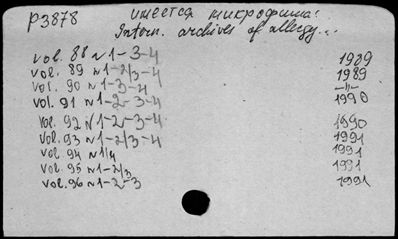 P3878 имеется микрофиша:
Intern. archives of allergy...
vol. 88 N1-3-4 1989
vol. 89 N1-2/3-4 1989
vol. 90 N1-3-4 -"-
vol. 91 N1-2-3-4 1990
vol. 92 N1-2-3-4 1990
vol. 93 N1-2/3-4 1991
vol. 94 N1/4 1991
vol. 95 N1-2/3 1991
vol. 96 N1-2-3 1991